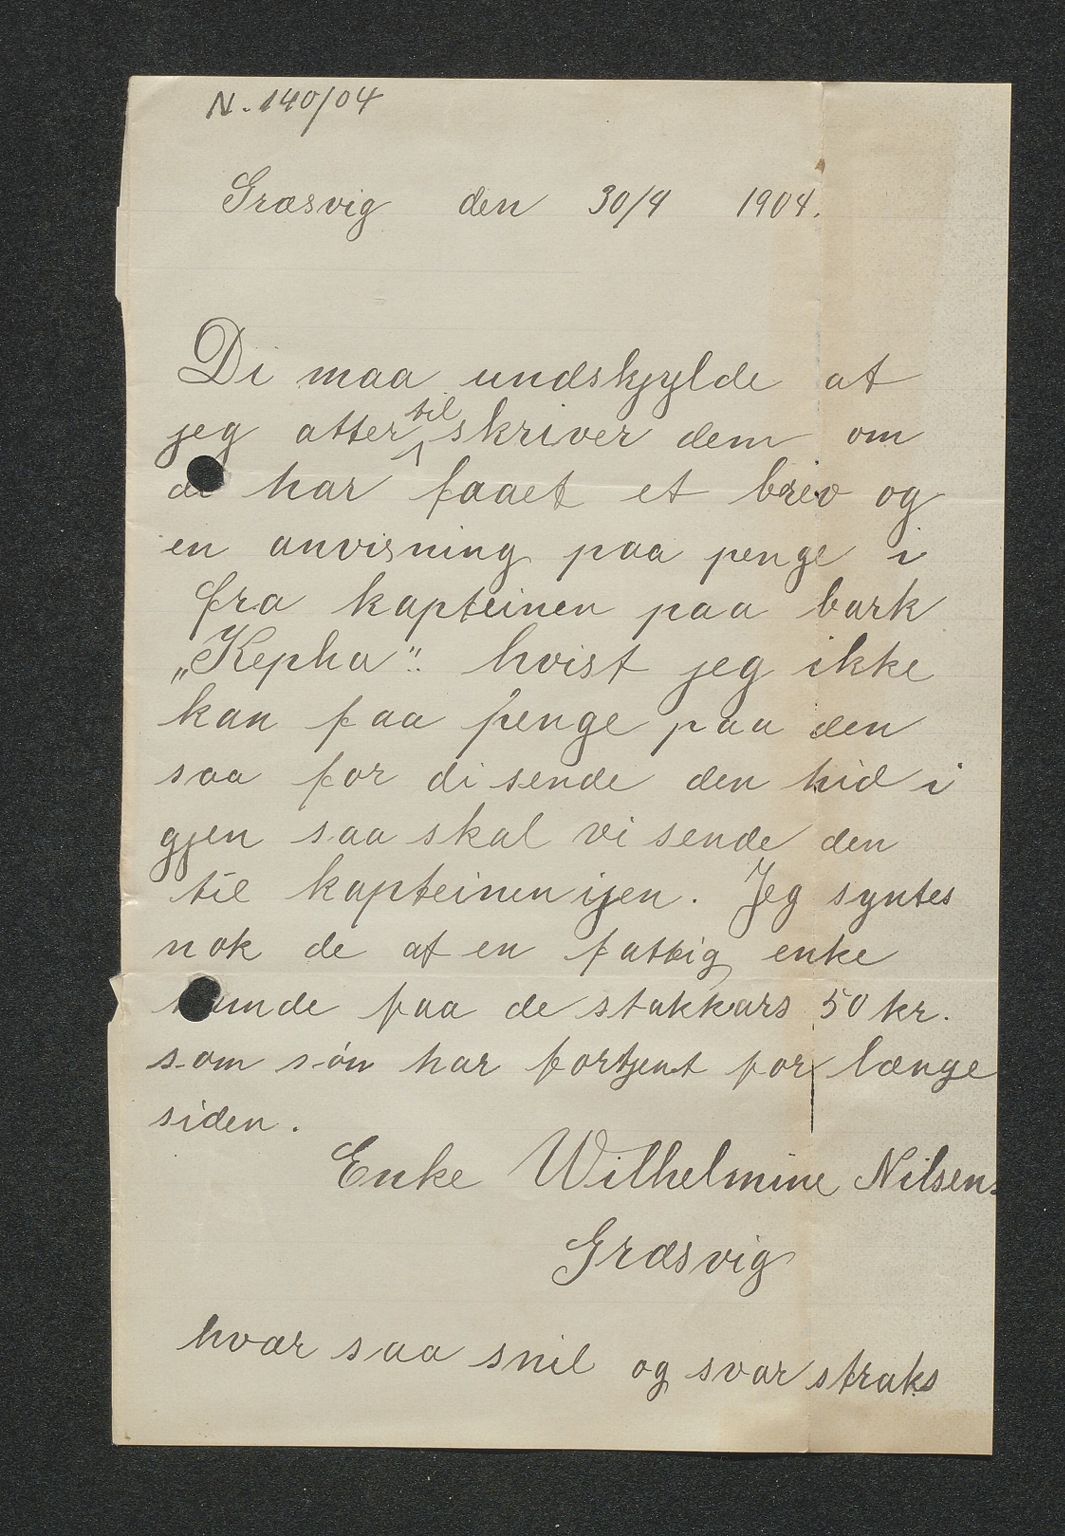 N. 140/04
Græsvig den 30/9 1904.
Di maa undskjylde at
jeg atter til skriver dem om
di har faaet et brev og
en anvisning paa penge i
fra kapteinen paa bark
„Kepha". hvist jeg ikke
kan faa penge paa den
saa for di sende den hid i
gjen saa skal vi sende den
til kapteinen ijen. Jeg syntes
nok de at en fattig enke
kunde faa de stakkars 50 kr.
som søn har fortjent for længe
siden.
Enke Wilhelmine Nilsen.
Græsvig
hvær saa snil og svar straks